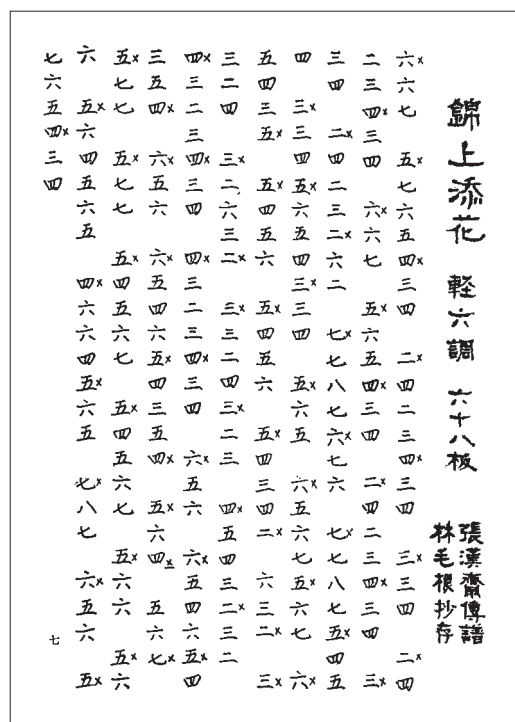 錦上添花 軽六調 六十八板
張漢齋傳譜
林毛根抄存
六×六七 五×七六五四×三四 二×四二三四×三四 三×三四 二×四
二三四×三四 六×六七 五×六五四×三四 二×四二三四×三四 三×
三四 二×四二三二×六二 七×七八七六×七六 七×七八七五×四五
四 三×三四五×六五四三×三四 五×六五 六×五六七五×六七 六×
五四三五× 五×四五六 五×四五六 五×四三四二× 六三二× 三×
三二四 三×二六三二× 三×三二四三×二三 四×五四三二×三二
四×三二三四×三四 四×三二三四×三四 六×五六 六×五四六五×四
三五四× 六×五六 六×五五六五×四三五四× 五×六四× 五六七×
五×七七 五×七七 五×四五六七 五×四五六七 五×六六 五×六
六 五×六四五六五 四×六六四五×六五 七×八七 六×五六 五×
七六五四×三四
七